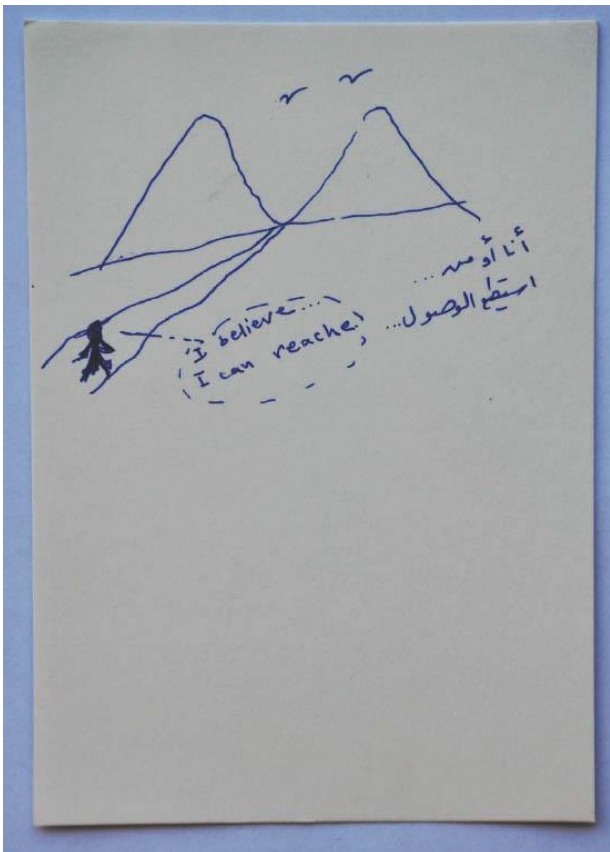 I believe...
I can reache.
أنا أو من...
استطيع الوصول...